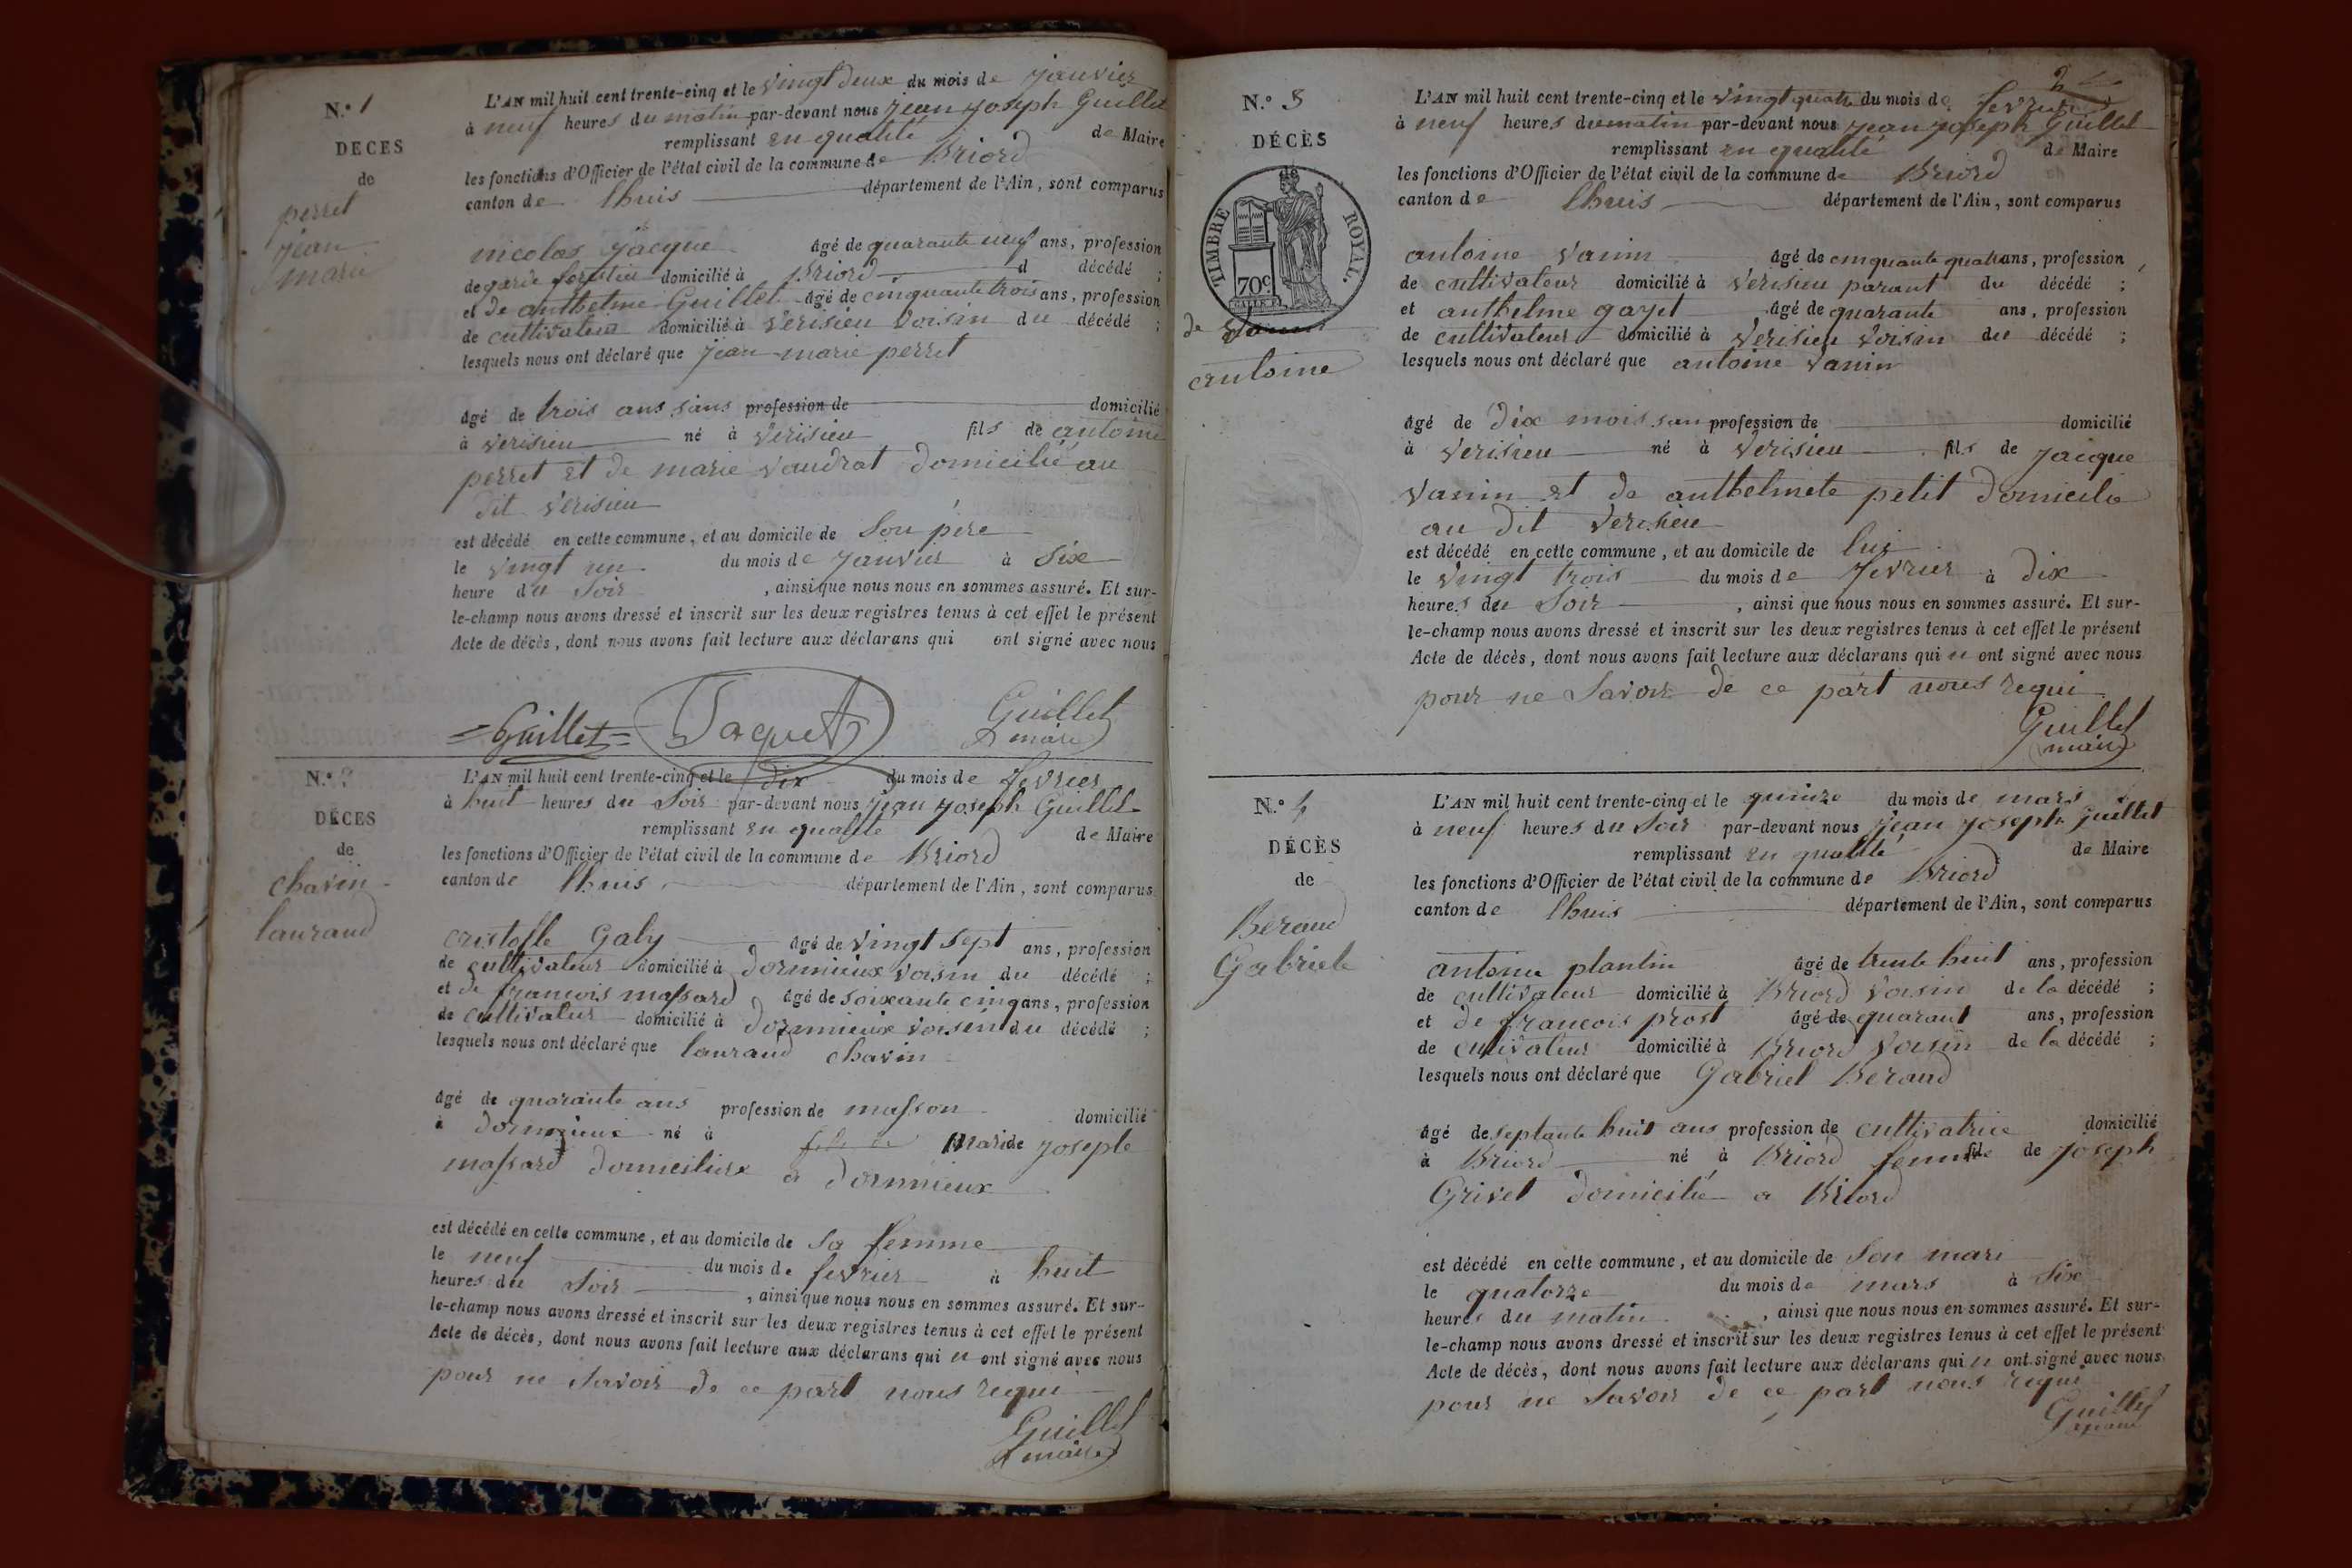 N.° 1
DECES
de
perret
jean
marie
L'AN mil huit cent trente-cinq et le vingt deux du mois de janvier
à neuf heures du matin par-devant nous jean joseph Guillet
remplissant en qualité de Maire
les fonctions d'Officier de l'état civil de la commune de Briord
canton de lhuis département de l'Ain, sont comparus
nicolas jacque âgé de quarante neuf ans, profession
de garde forestier domicilié à Briord d décédé ;
et de anthelme Guillet âgé de cinquante trois ans, profession
de cultivateur domicilié à verisieu voisin du décédé ;
lesquels nous ont déclaré que jean marie perret
âgé de trois ans sans profession de domicilié
à verisieu né à verisieu fils de antoine
perret et de marie vaudrat domicilié au
dit verisieu
est décédé en cette commune, et au domicile de son père
le vingt un du mois de janvier à six
heure du soir, ainsi que nous nous en sommes assuré. Et sur-
le-champ nous avons dressé et inscrit sur les deux registres tenus à cet effet le présent
Acte de décès, dont nous avons fait lecture aux déclarans qui ont signé avec nous
Guillet Jaquet Guillet
maire
N.° 2
DÉCES
de
chavin
lauraud
L'AN mil huit cent trente-cinq et le dix du mois de fevrier
à huit heures du soir par-devant nous jean joseph Guillet
remplissant en qualité de Maire
les fonctions d'Officier de l'état civil de la commune de Briord
canton de lhuis département de l'Ain, sont comparus
cristofle Gaby âgé de vingt sept ans, profession
de cultivateur domicilié à dormieux voisin du décédé ;
et de francois massard âgé de soixante cinq ans, profession
de cultivateur domicilié à dornmieux voisin du décédé ;
lesquels nous ont déclaré que lauraud chavin
âgé de quarante ans profession de masson domicilié
à né à fils de Mari de josephe
massard domiciliere a dornmieux
est décédé en cette commune, et au domicile de sa femme
le neuf du mois de fevrier à huit
heures du soir, ainsi que nous nous en sommes assuré. Et sur-
le-champ nous avons dressé et inscrit sur les deux registres tenus à cet effet le présent
Acte de décès, dont nous avons fait lecture aux déclarans qui n ont signé avec nous
pour ne savoir de ce part nous requi
Guillet
maire
2
N.° 3
DÉCÈS
TIMBRE ROYAL.
70c.
de vanin
antoine
L'AN mil huit cent trente-cinq et le vingt quatre du mois de fevrier
à neuf heures du matin par-devant nous jean joseph Guillet
remplissant en qualité de Maire
les fonctions d'Officier de l'état civil de la commune de Briord
canton de lhuis département de l'Ain, sont comparus
antoine vanin âgé de cinquante quatre ans, profession
de cultivateur domicilié à verisieu parant du décédé ;
et anthelme gayet âgé de quarante ans, profession
de cultivateur domicilié à verisieu voisin du décédé ;
lesquels nous ont déclaré que antoine vanin
âgé de dix mois san profession de domicilié
à verisieu né à verisieu fils de jacque
vanin et de anthelmete petit domicilié
au dit verisieu
est décédé en cette commune, et au domicile de lui
le vingt trois du mois de fevrier à dix
heures du soir, ainsi que nous nous en sommes assuré. Et sur-
le-champ nous avons dressé et inscrit sur les deux registres tenus à cet effet le présent
Acte de décès, dont nous avons fait lecture aux déclarans qui n ont signé avec nous
pour ne savoir de ce part nous requi
Guillet
maire
N.° 4
DÉCÈS
de
Beraud
Gabriele
L'AN mil huit cent trente-cinq et le quinze du mois de mars
à neuf heures du soir par-devant nous jean joseph guillet
remplissant en qualité de Maire
les fonctions d'Officier de l'état civil de la commune de Briord
canton de lhuis département de l'Ain, sont comparus
antoine plantin âgé de trente huit ans, profession
de cultivateur domicilié à Briord voisin de la décédé ;
et de francois prost âgé de quarant ans, profession
de cultivateur domicilié à Briord voisin de la décédé ;
lesquels nous ont déclaré que Gabriel Beraud
âgé de septante huit ans profession de cultivatrice domicilié
à Briord né à Briord femme de joseph
Grivet domicilié a Briord
est décédé en cette commune, et au domicile de son mari
le quatorze du mois de mars à six
heures du matin, ainsi que nous nous en sommes assuré. Et sur-
le-champ nous avons dressé et inscrit sur les deux registres tenus à cet effet le présent
Acte de décès, dont nous avons fait lecture aux déclarans qui n ont signé avec nous
pour ne savoir de ce part nous requi
Guillet
maire